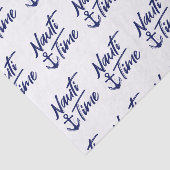 Nauti
Time
Nauti
Time
Nauti
Time
Nauti
Time
Nauti
Time
Nauti
Time